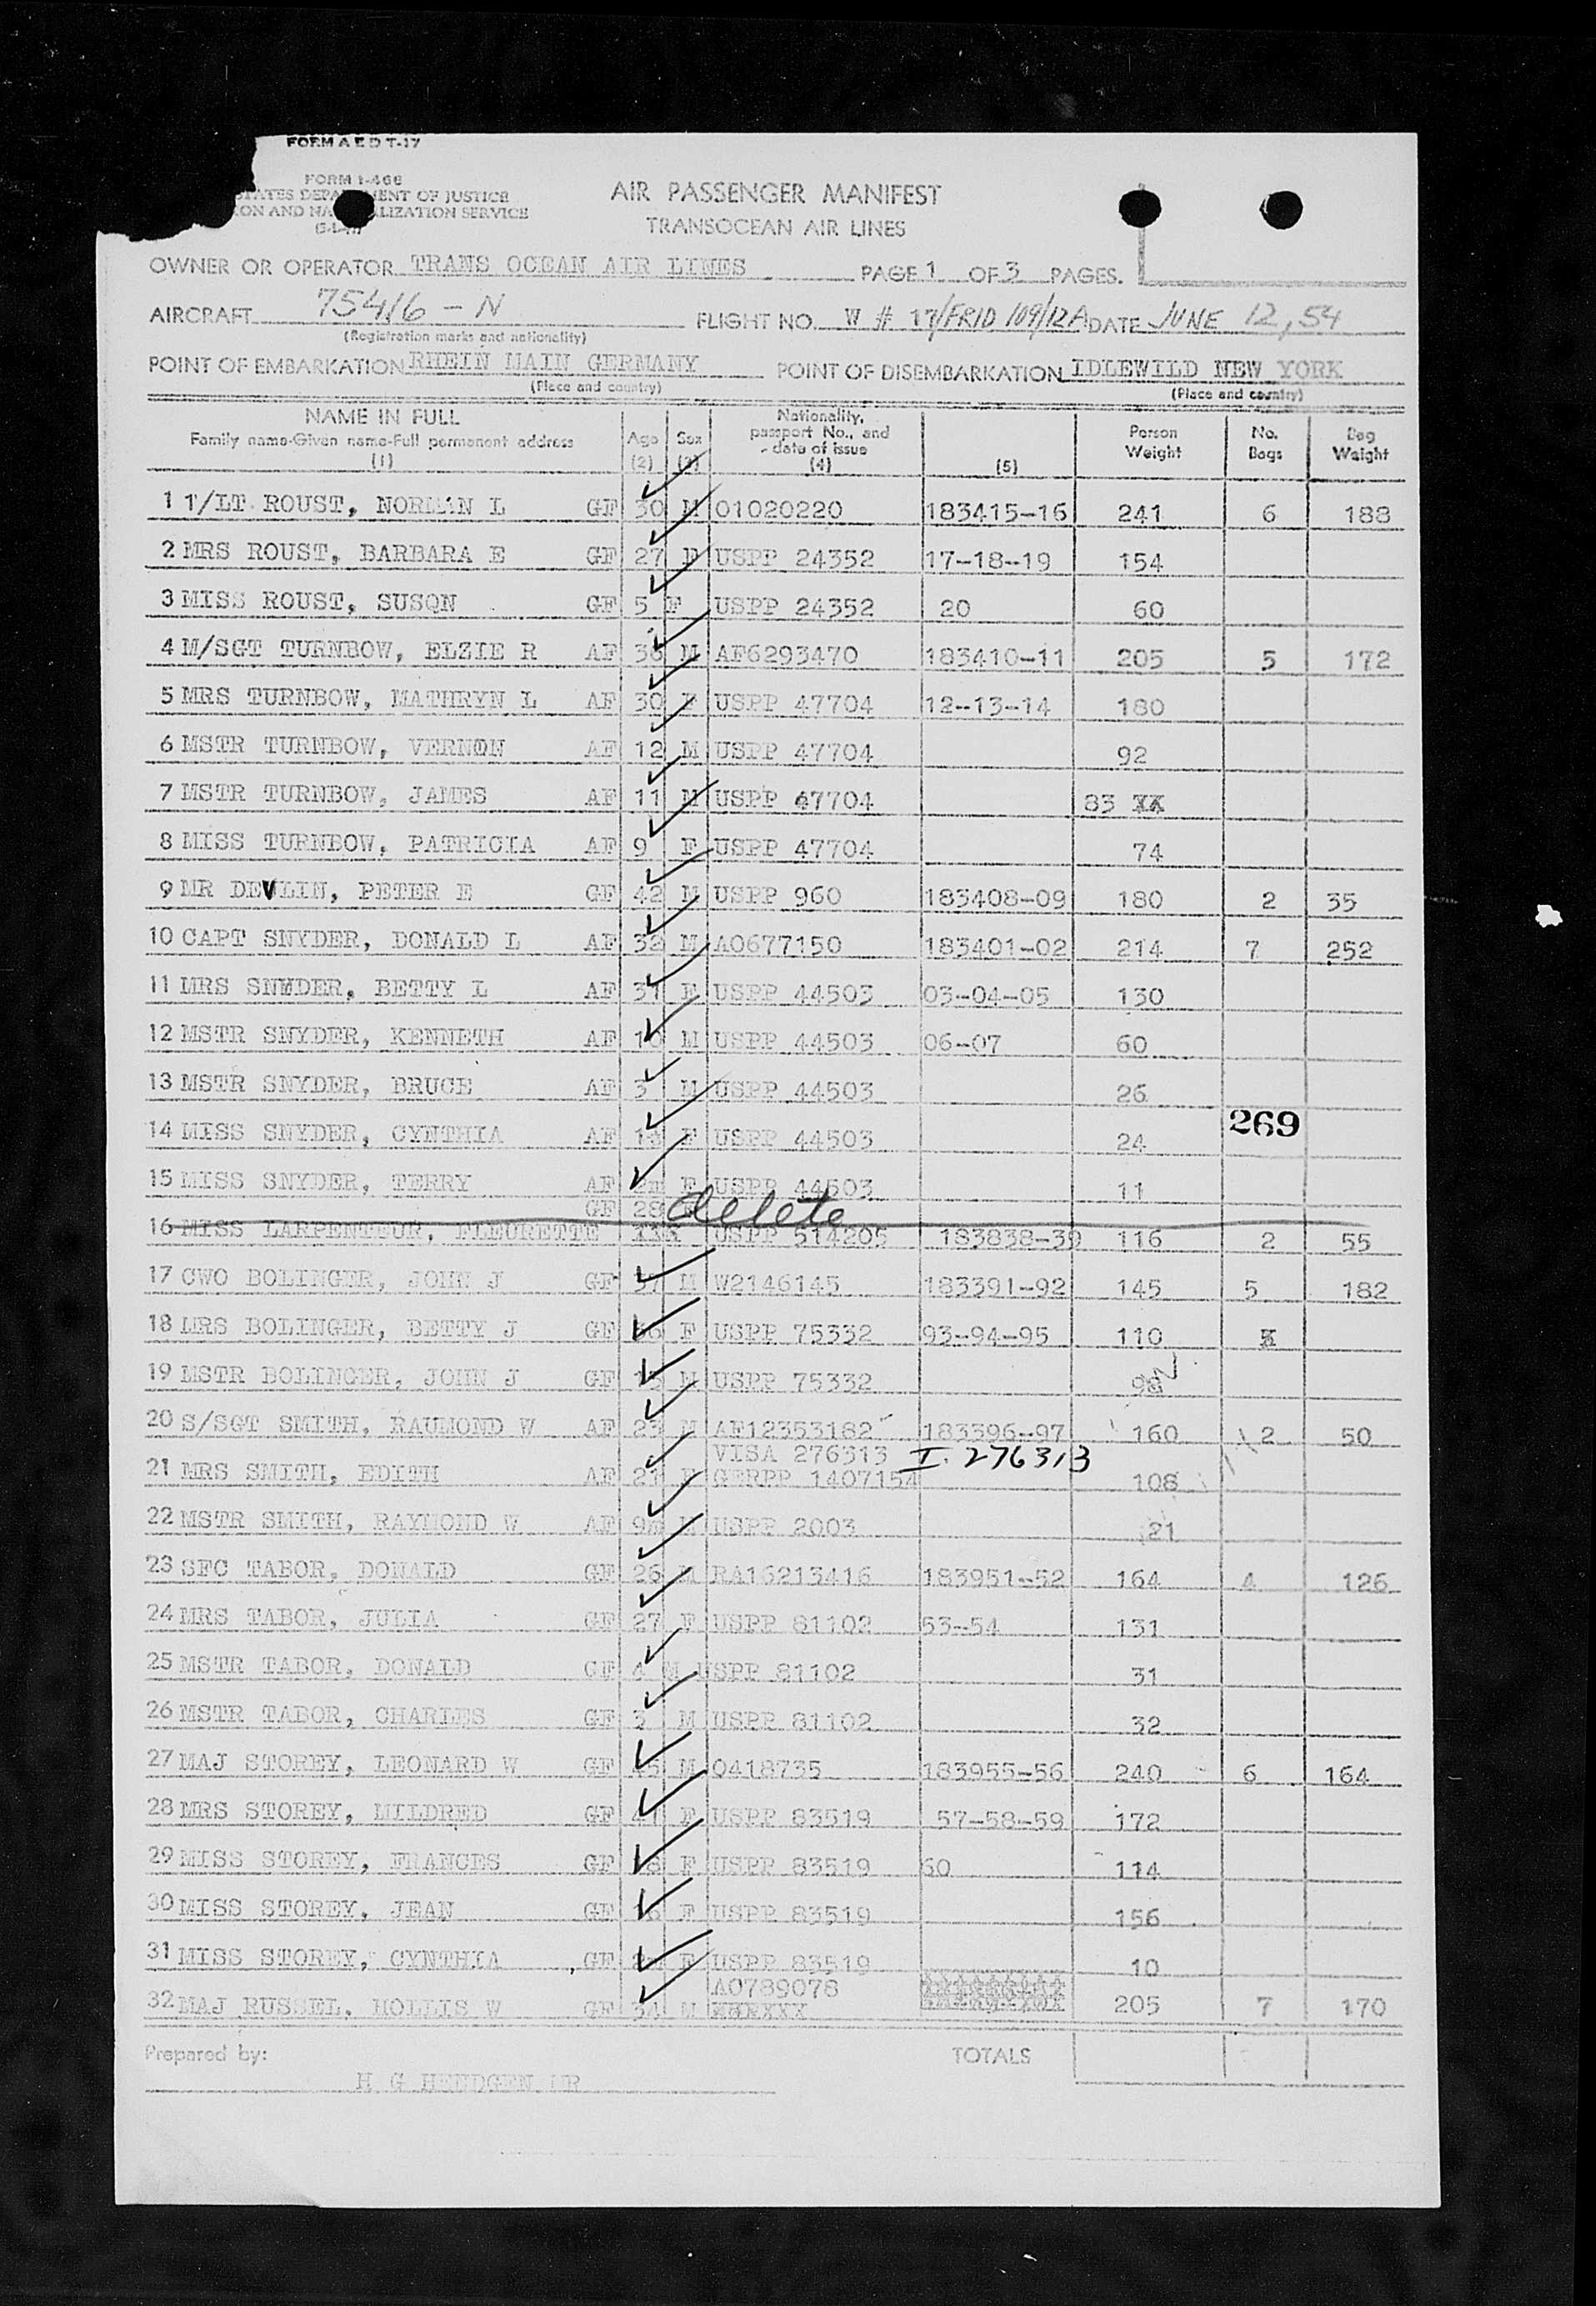 FORM A E D T-17
FORM I-466
STATES DEPARTMENT OF JUSTICE
ION AND NATURALIZATION SERVICE
AIR PASSENGER MANIFEST
TRANSOCEAN AIR LINES
OWNER OR OPERATOR TRANS OCEAN AIR LINES PAGE 1 OF 3 PAGES.
AIRCRAFT 75416 - N FLIGHT NO. W # 17/FRID 109/12A DATE JUNE 12, 54
(Registration marks and nationality)
POINT OF EMBARKATION RHEIN MAIN GERMANY POINT OF DISEMBARKATION IDLEWILD NEW YORK
(Place and country) (Place and country)
NAME IN FULL Family name-Given name-Full permanent address (1) Age (2) Sex (3) Nationality, passport No., and date of issue (4) (5) Person Weight No. Bags Bag Weight
1 1/LT ROUST, NORMAN L GF 30 M 01020220 183415-16 241 6 188
2 MRS ROUST, BARBARA E GF 27 F USPP 24352 17-18-19 154
3 MISS ROUST, SUSQN GF 5 F USPP 24352 20 60
4 M/SGT TURNBOW, ELZIE R AF 36 M AF6293470 183410-11 205 5 172
5 MRS TURNBOW, MATHRYN L AF 30 F USPP 47704 12-13-14 180
6 MSTR TURNBOW, VERNON AF 12 M USPP 47704 92
7 MSTR TURNBOW, JAMES AF 11 M USPP 47704 83 XX
8 MISS TURNBOW, PATRICIA AF 9 F USPP 47704 74
9 MR DEVLIN, PETER E GF 42 M USPP 960 183408-09 180 2 35
10 CAPT SNYDER, DONALD L AF 32 M AO677150 183401-02 214 7 252
11 MRS SNYDER, BETTY L AF 31 F USPP 44503 03-04-05 130
12 MSTR SNYDER, KENNETH AF 10 M USPP 44503 06-07 60
13 MSTR SNYDER, BRUCE AF 3 M USPP 44503 26
269
14 MISS SNYDER, CYNTHIA AF F USPP 44503 24
15 MISS SNYDER, TERRY AF 2m F USPP 44503 11
GF 28 F delete
16 MISS LARPENTEUR, FLEURETTE USPP 514205 183838-39 116 2 55
17 CWO BOLINGER, JOHN J GF 37 M W2146145 183391-92 145 5 182
18 MRS BOLINGER, BETTY J GF 36 F USPP 75332 93-94-95 110
19 MSTR BOLINGER, JOHN J GF M USPP 75332
20 S/SGT SMITH, RAUMOND W AF 23 M AF12353182 183396-97 160 2 50
VISA 276313 I. 276313
21 MRS SMITH, EDITH AF 21 F GERPP 1407154 108
22 MSTR SMITH, RAYMOND W AF 9m M USPP 2003 21
23 SFC TABOR, DONALD GF 26 M RA16213416 183951-52 164 4 126
24 MRS TABOR, JULIA GF 27 F USPP 81102 53-54 131
25 MSTR TABOR, DONALD GF 4 M USPP 81102 31
26 MSTR TABOR, CHARLES GF 3 M USPP 81102 32
27 MAJ STOREY, LEONARD W GF 45 M 0418735 183955-56 240 6 164
28 MRS STOREY, MILDRED GF 41 F USPP 83519 57-58-59 172
29 MISS STOREY, FRANCES GF 18 F USPP 83519 60 114
30 MISS STOREY, JEAN GF 16 F USPP 83519 156
31 MISS STOREY, CYNTHIA GF F USPP 83519 10
AO789078
32 MAJ RUSSEL, HOLLIS W GF 34 M 205 7 170
Prepared by: TOTALS
H G